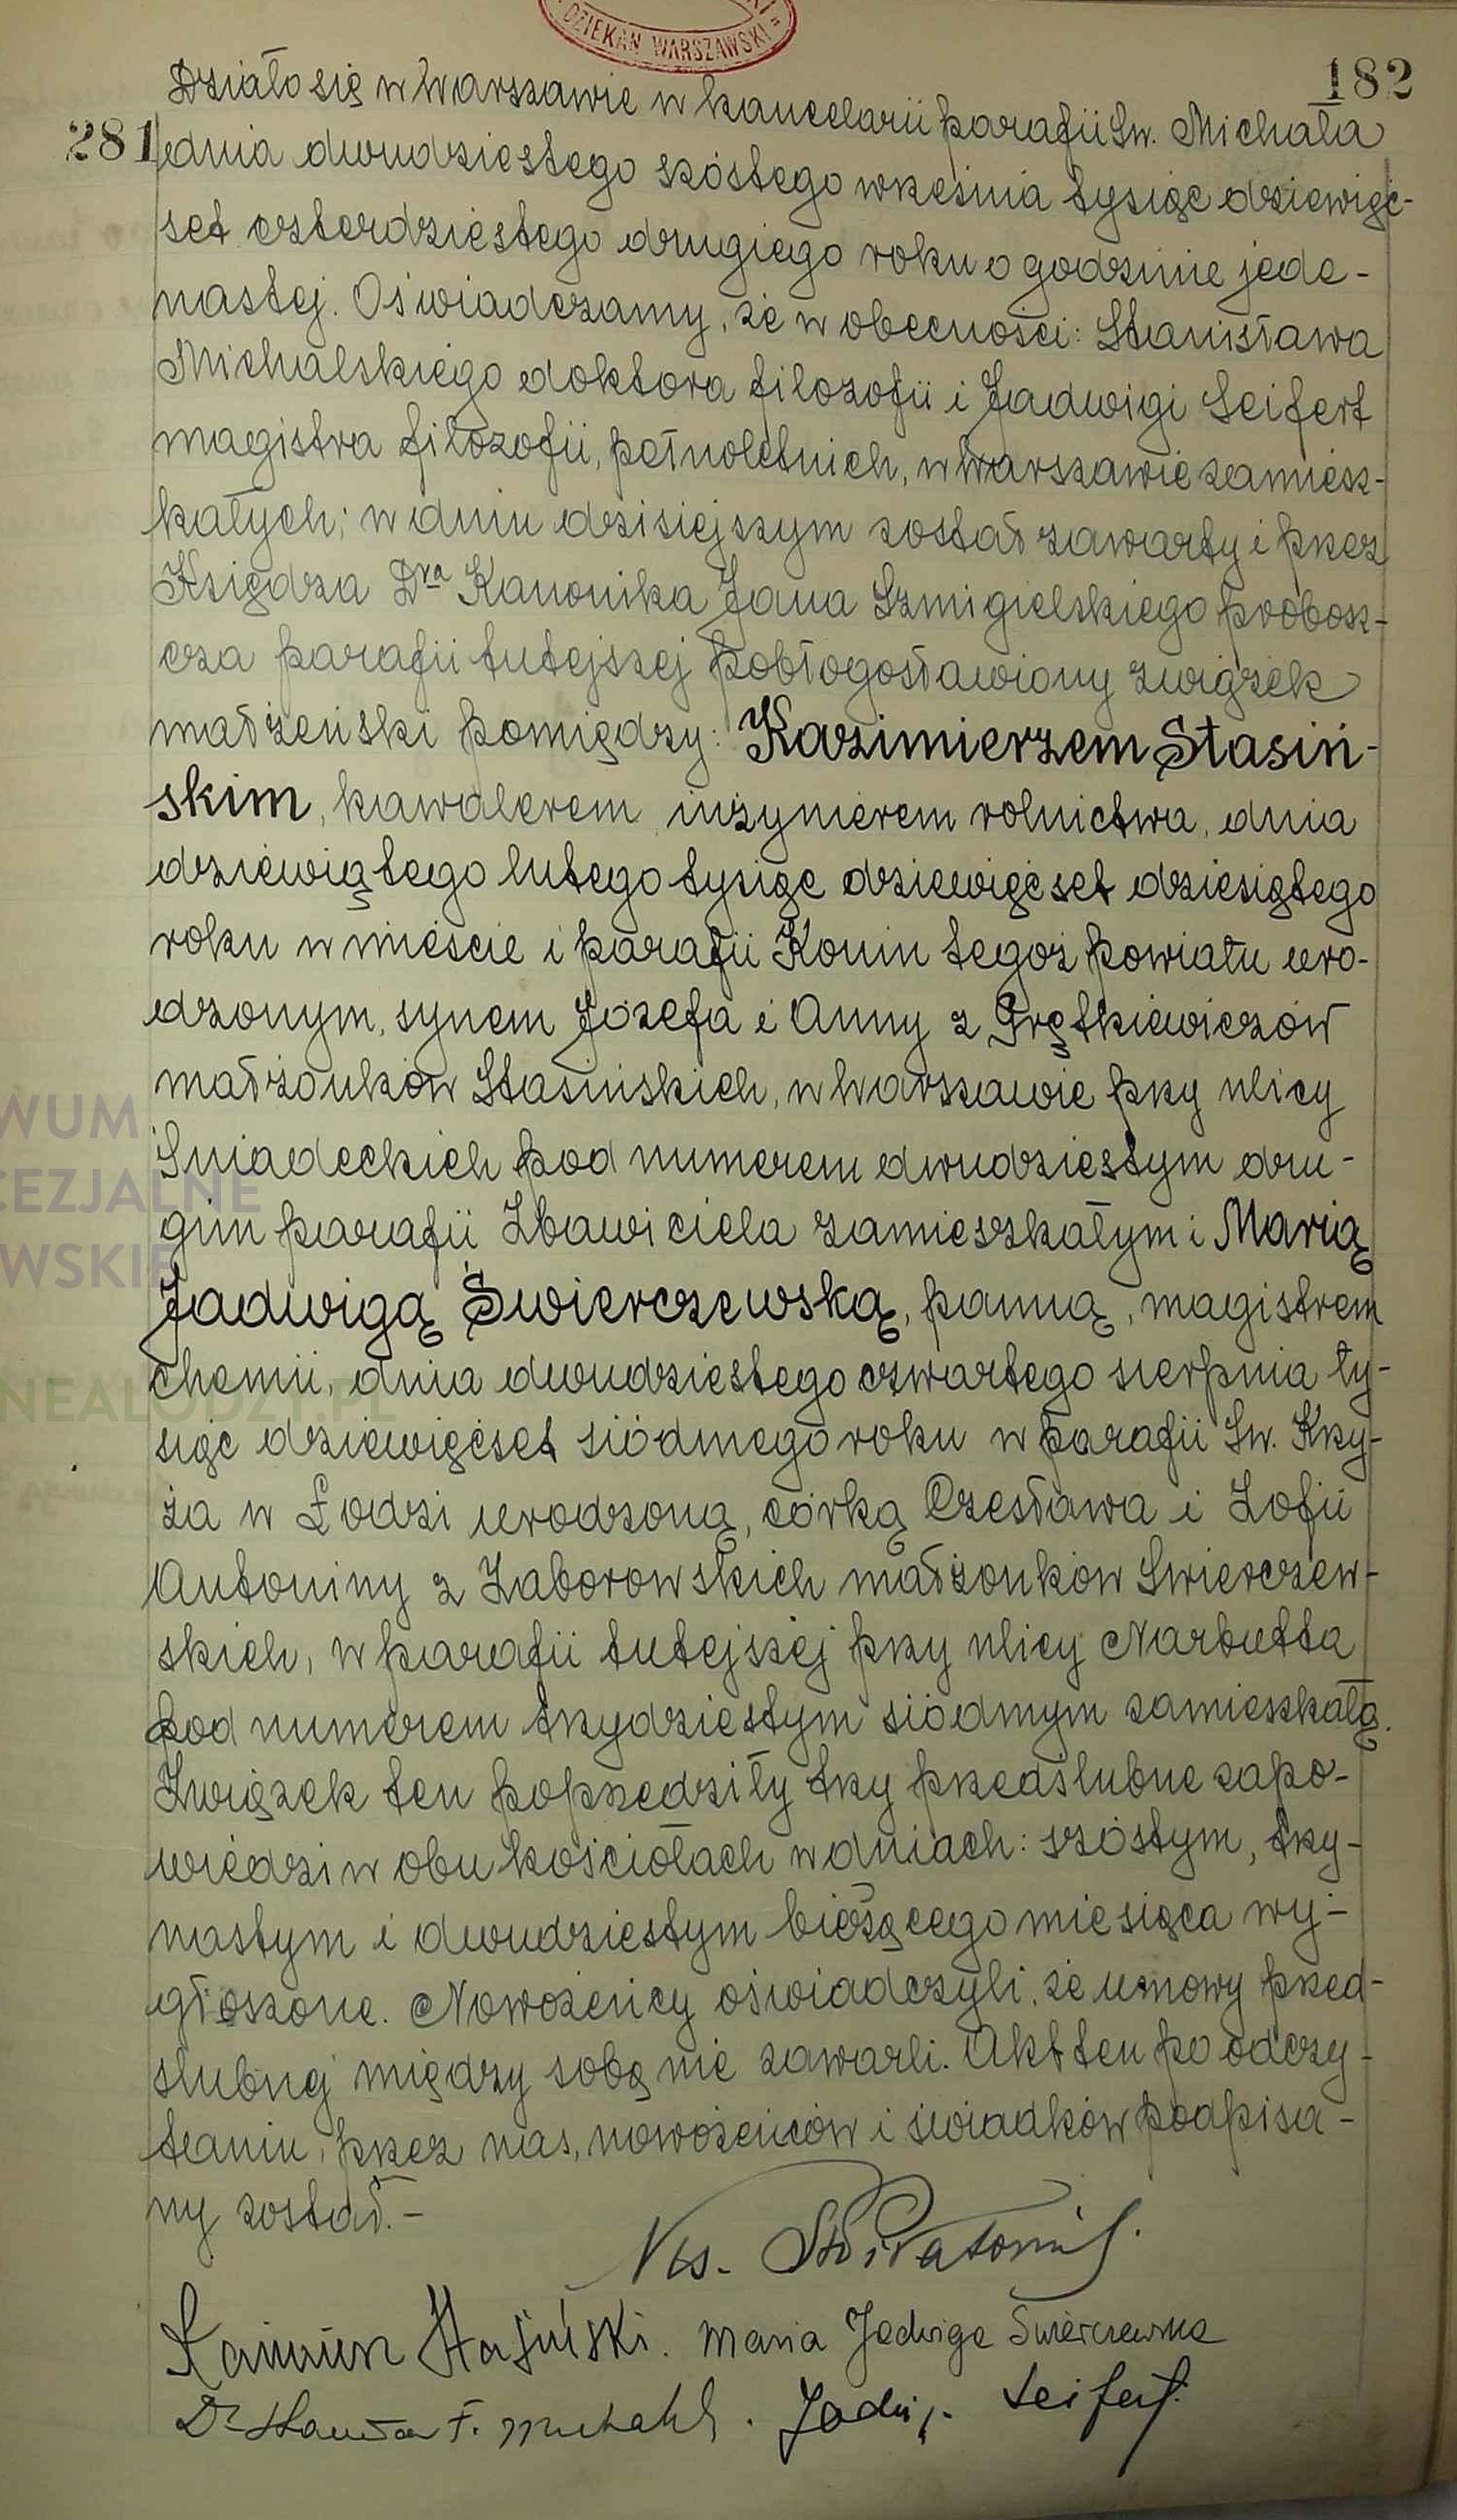 DZIEKAN WARSZAWSKI
182
Działo się w Warszawie w kancelarii parafii Św. Michała
281 dnia dwudziestego szóstego września tysiąc dziewięć-
set czterdziestego drugiego roku o godzinie jede-
nastej. Oświadczamy, że w obecności: Stanisława
Michalskiego doktora filozofii i Jadwigi Seifert
magistra filozofii, pełnoletnich, w Warszawie zamiesz-
kałych; w dniu dzisiejszym został zawarty i przez
Księdza Dra Kanonika Jana Szmigielskiego probosz-
cza parafii tutejszej pobłogosławiony związek
małżeński pomiędzy: Kazimierzem Stasiń-
skim, kawalerem, inżynierem rolnictwa, dnia
dziewiątego lutego tysiąc dziewięćset dziesiątego
roku w mieście i parafii Konin tegoż powiatu uro-
dzonym, synem Józefa i Anny z Grętkiewiczów
małżonków Stasińskich, w Warszawie przy ulicy
Śniadeckich pod numerem dwudziestym dru-
gim parafii Zbawiciela zamieszkałym i Marią
Jadwigą Świerczewską, panną, magistrem
chemii, dnia dwudziestego czwartego sierpnia ty-
siąc dziewięćset siódmego roku w parafii Św. Krzy-
ża w Łodzi urodzoną, córką Czesława i Zofii
Antoniny z Zaborowskich małżonków Świerczew-
skich, w parafii tutejszej przy ulicy Narbutta
pod numerem trzydziestym siódmym zamieszkałą.
Związek ten poprzedziły trzy przedślubne zapo-
wiedzi w obu kościołach w dniach: szóstym, trzy-
nastym i dwudziestym bieżącego miesiąca wy-
głoszone. Nowożeńcy oświadczyli, że umowy przed-
ślubnej między sobą nie zawarli. Akt ten po odczy-
taniu, przez nas, nowożeńców i świadków podpisa-
ny został.-
Ks.
Kazimierz Stasiński. Maria Jadwiga Świerczewska
Dr Stanisław F. Michalski. Jadwiga Seifert.
WUM
CEZJALNE
WSKIE
NEALODZY.PL